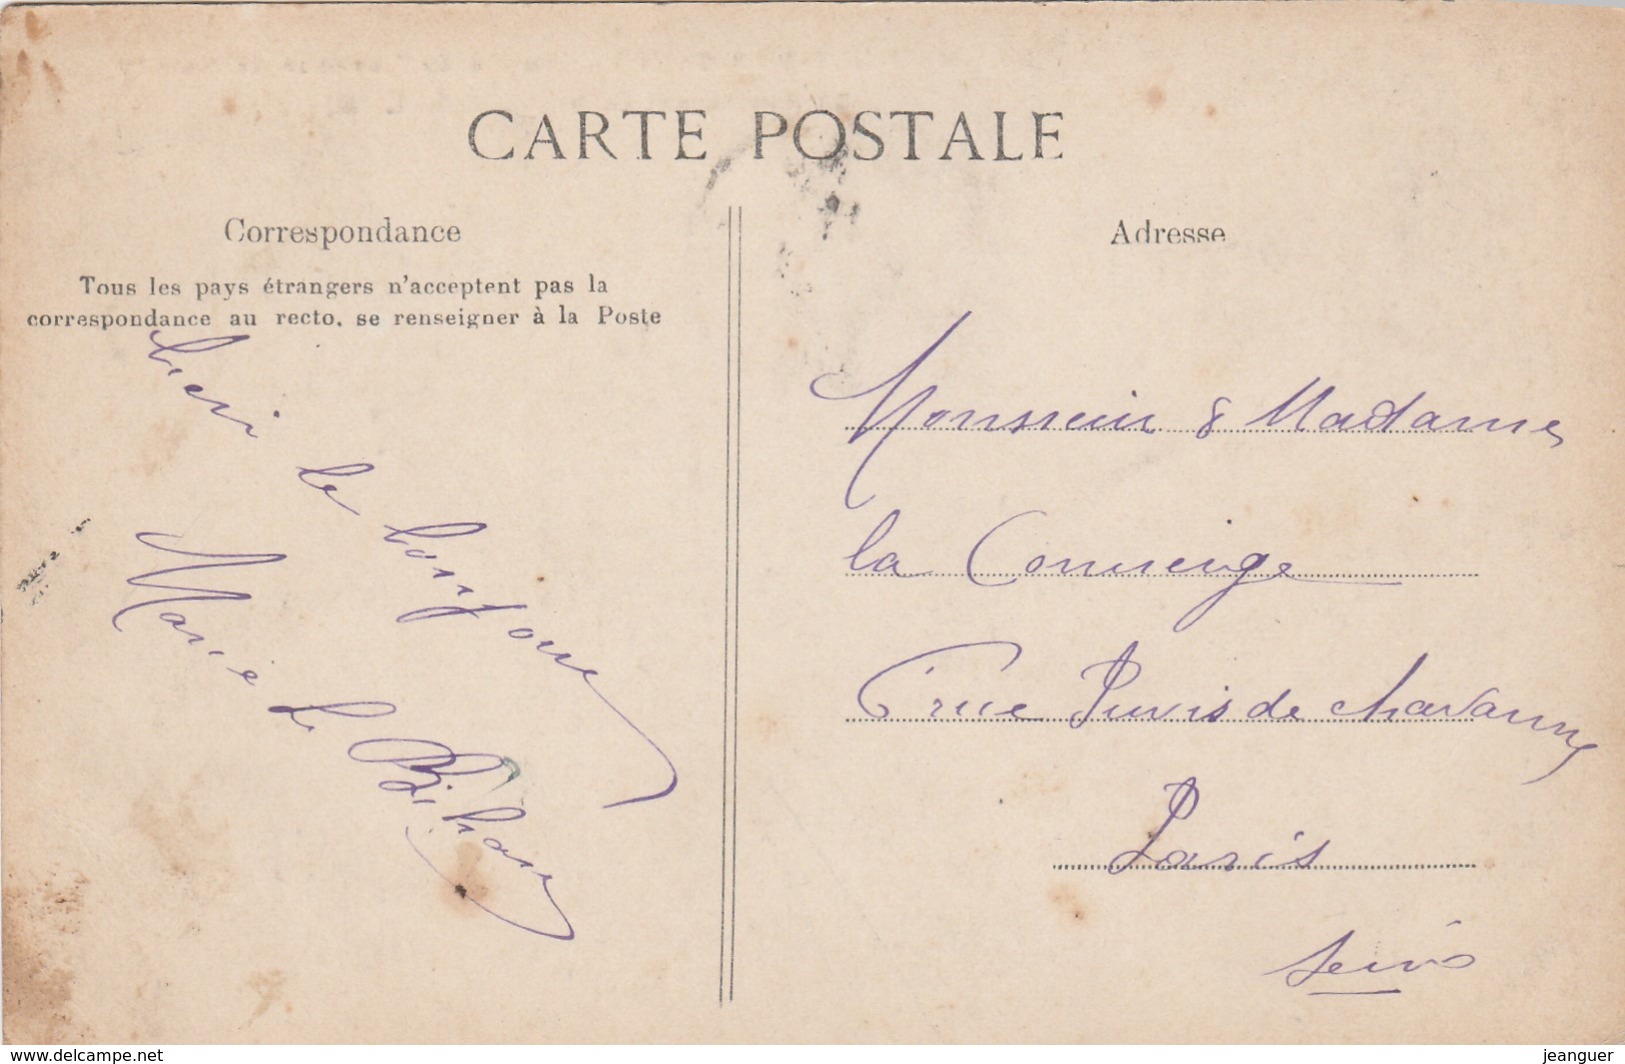 CARTE POSTALE
Correspondance
Tous les pays étrangers n'acceptent pas la
correspondance au recto, se renseigner à la Poste
bien le bonjour
Marie Le Bihan
Adresse
Monsieur & Madame
la Concierge
6 rue Puvis de Chavanne
Paris
Seine
www.delcampe.net
jeanguer